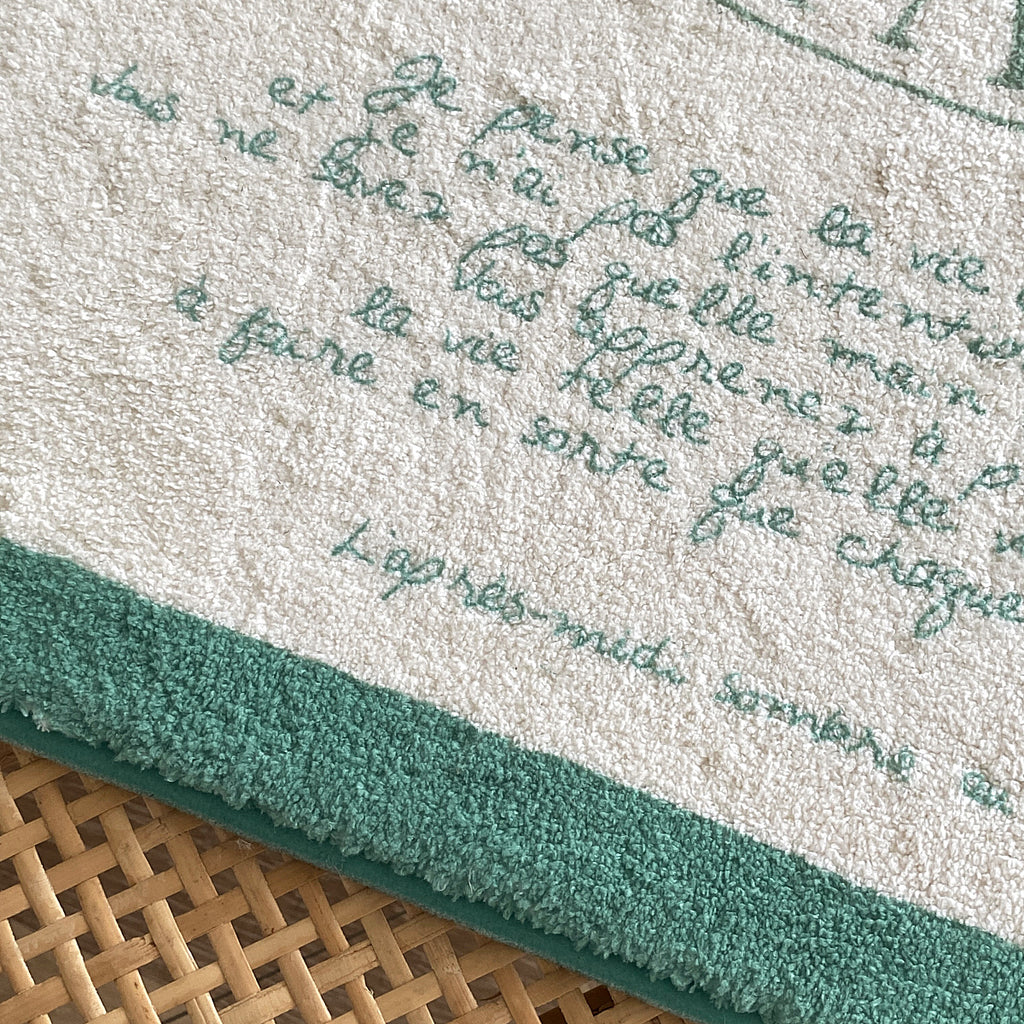 Je pense que la vie
et je n'ai pas l'intent
vous ne savez pas quelle main
Vous apprenez à p
la vie telle quelle
à faire en sorte que chaque
L'après-midi sombre